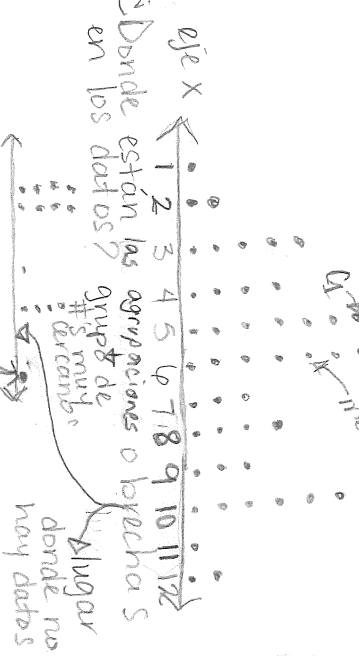 eje x
1 2 3 4 5 6 7 8 9 10 11 12
¿Donde están las agrupaciones o brechas
en los datos?
grupo de
#s muy
cercano.
lugar
donde no
hay datos